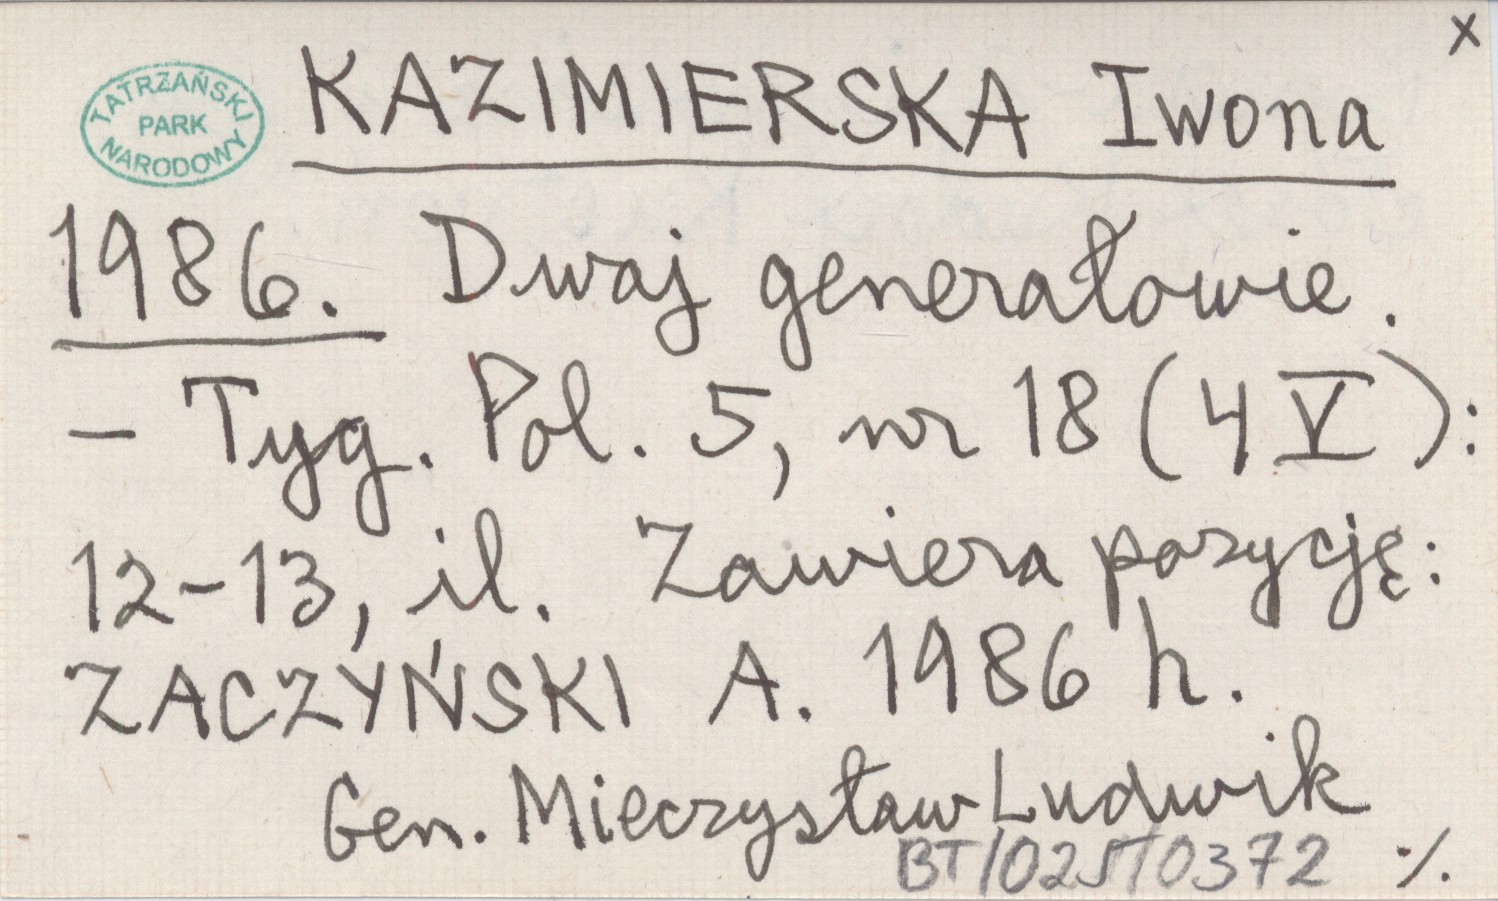 x
KAZIMIERSKA Iwona
TATRZAŃSKI
PARK
NARODOWY
1986. Dwaj generałowie.
- Tyg. Pol. 5, nr 18 (4 V):
12-13, il. Zawiera pozycję:
ZACZYŃSKI A. 1986 h.
Gen. Mieczysław Ludwik
BT/025/0372 ./.